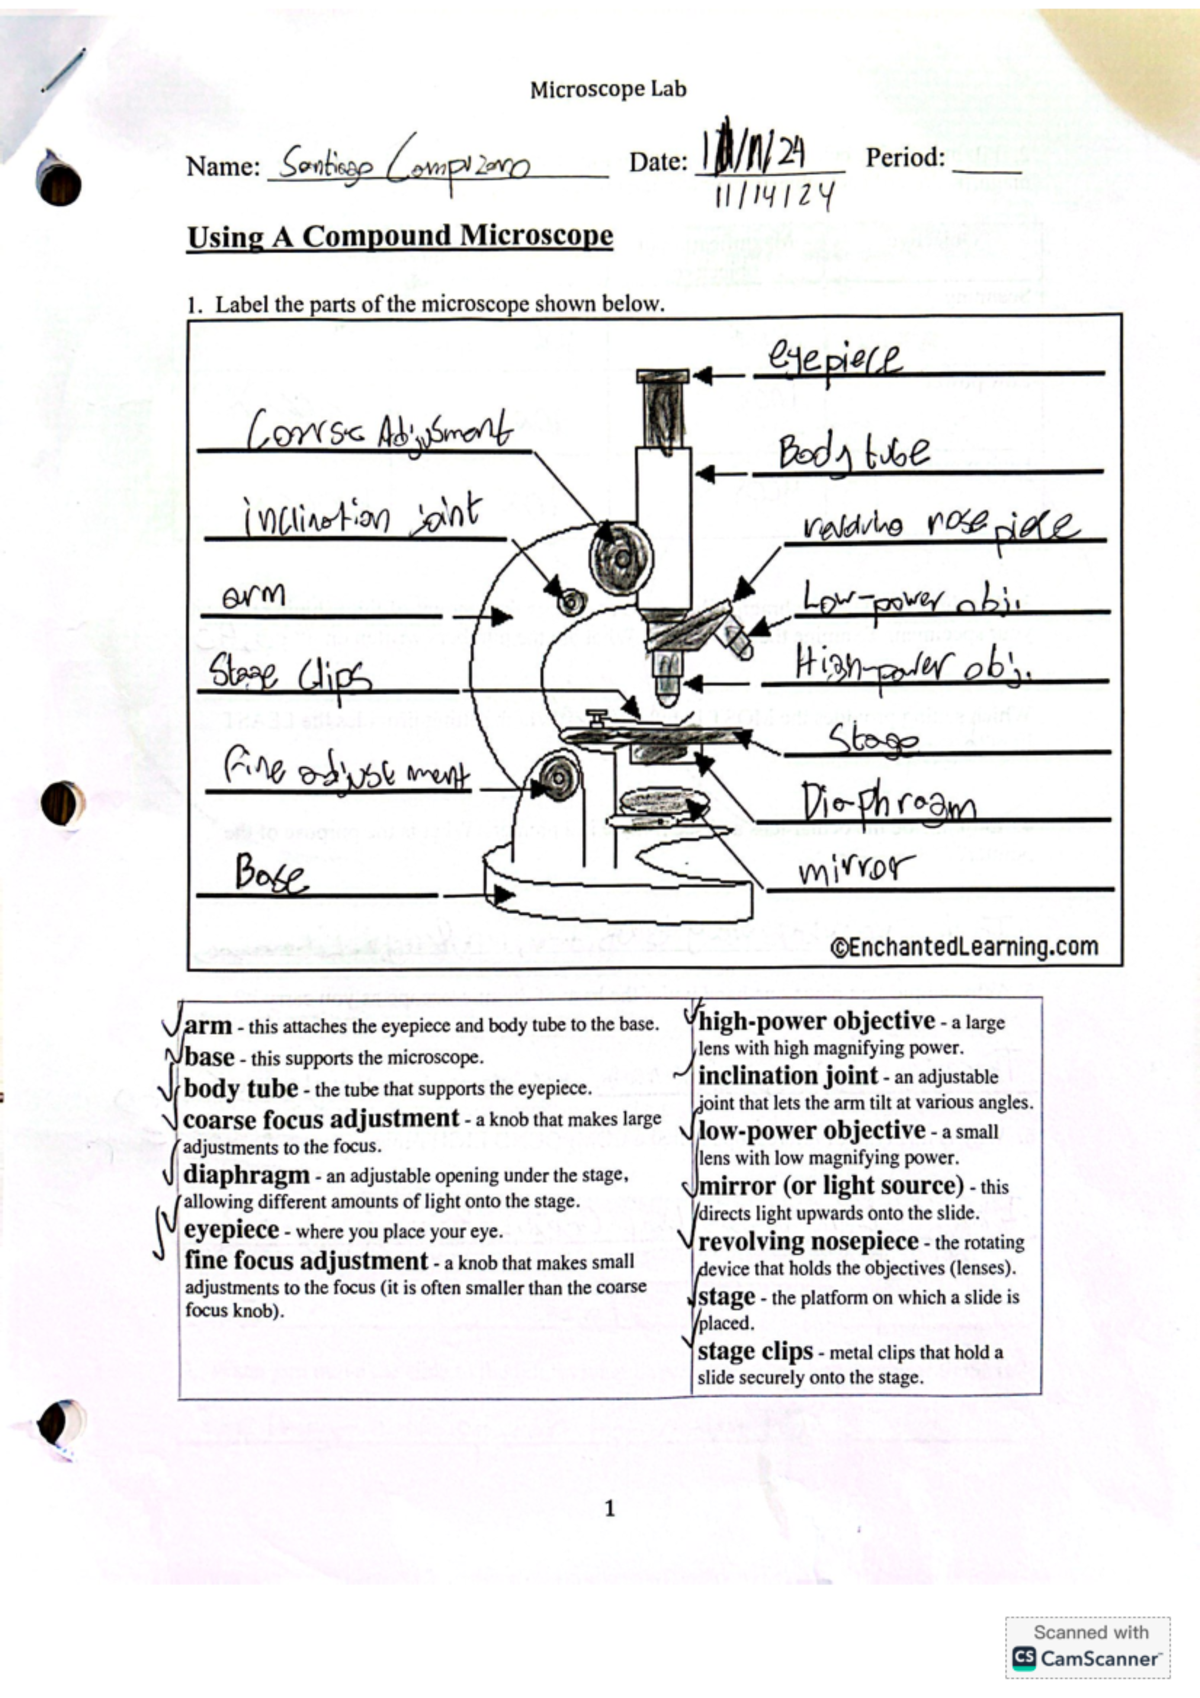 Microscope Lab
Name: Santiago Date: 11/24 Period:
11/14/24
Using A Compound Microscope
1. Label the parts of the microscope shown below.
eyepiece
Coarse Adjusment
Body tube
inclination joint
revolving nosepiece
arm
Low-power obj.
Stage Clips
High-power obj.
Stage
Fine adjustment
Diaphragm
Base
mirror
©EnchantedLearning.com
arm - this attaches the eyepiece and body tube to the base.
base - this supports the microscope.
body tube - the tube that supports the eyepiece.
coarse focus adjustment - a knob that makes large
adjustments to the focus.
diaphragm - an adjustable opening under the stage,
allowing different amounts of light onto the stage.
eyepiece - where you place your eye.
fine focus adjustment - a knob that makes small
adjustments to the focus (it is often smaller than the coarse
focus knob).
high-power objective - a large
lens with high magnifying power.
inclination joint - an adjustable
joint that lets the arm tilt at various angles.
low-power objective - a small
lens with low magnifying power.
mirror (or light source) - this
directs light upwards onto the slide.
revolving nosepiece - the rotating
device that holds the objectives (lenses).
stage - the platform on which a slide is
placed.
stage clips - metal clips that hold a
slide securely onto the stage.
1
Scanned with
CS CamScanner